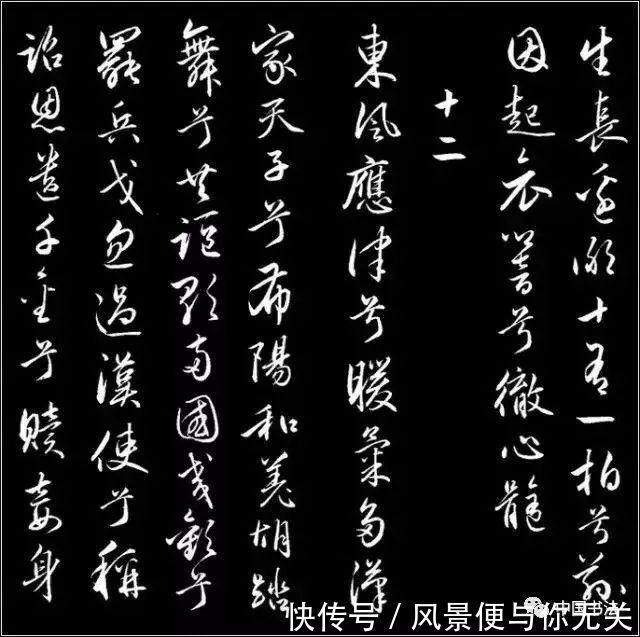 生長邊鄙十有一拍兮茲
因起哀響兮徹心髓
十二
東風應律兮暖氣多漢
家天子兮布陽和羌胡蹈
舞兮共謳歌兩國交歡兮
罷兵戈忽遇漢使兮稱
詔恩遺千金兮贖妾身
中国书法
快传号/风景便与你无关